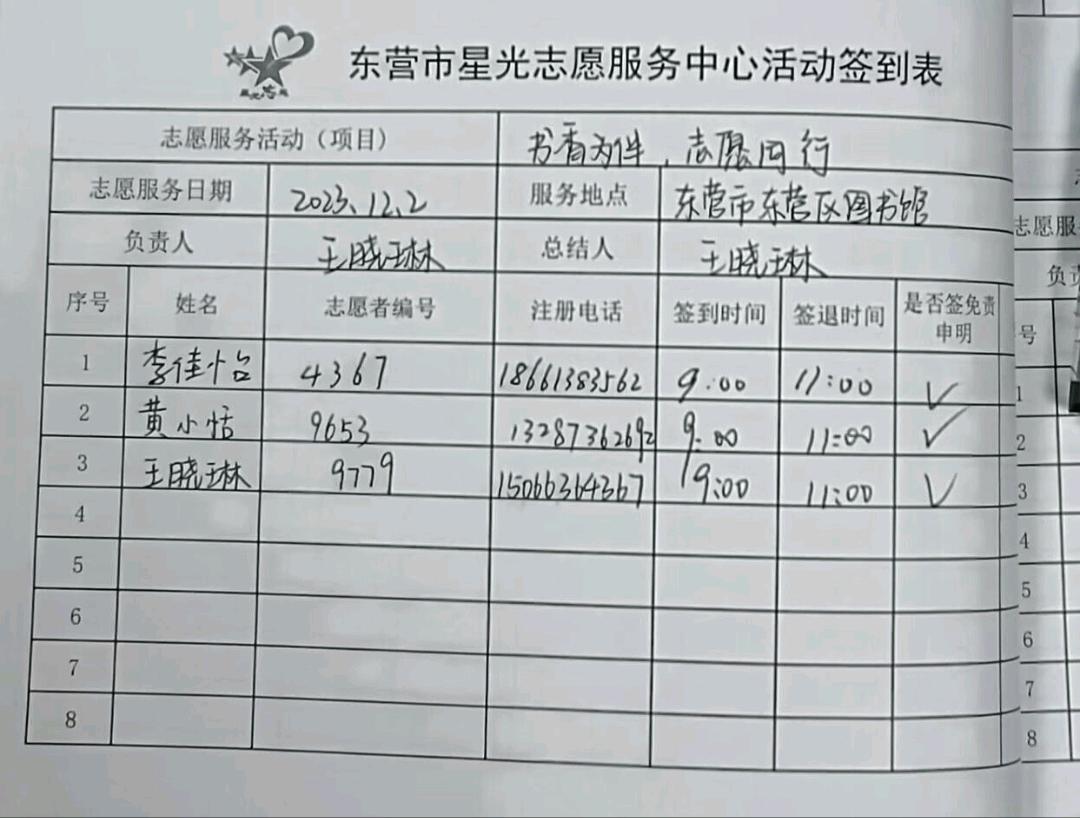 东营市星光志愿服务中心活动签到表
志愿服务活动（项目） 书香为伴，志愿同行
志愿服务日期 2023.12.2 服务地点 东营市东营区图书馆
负责人 王晓琳 总结人 王晓琳
序号 姓名 志愿者编号 注册电话 签到时间 签退时间 是否签免责申明
1 李佳怡 4367 18661383562 9:00 11:00 ✓
2 黄小恬 9653 13287362692 9:00 11:00 ✓
3 王晓琳 9779 15066364367 9:00 11:00 ✓
4
5
6
7
8
志愿服
负责
号
1
2
3
4
5
6
7
8